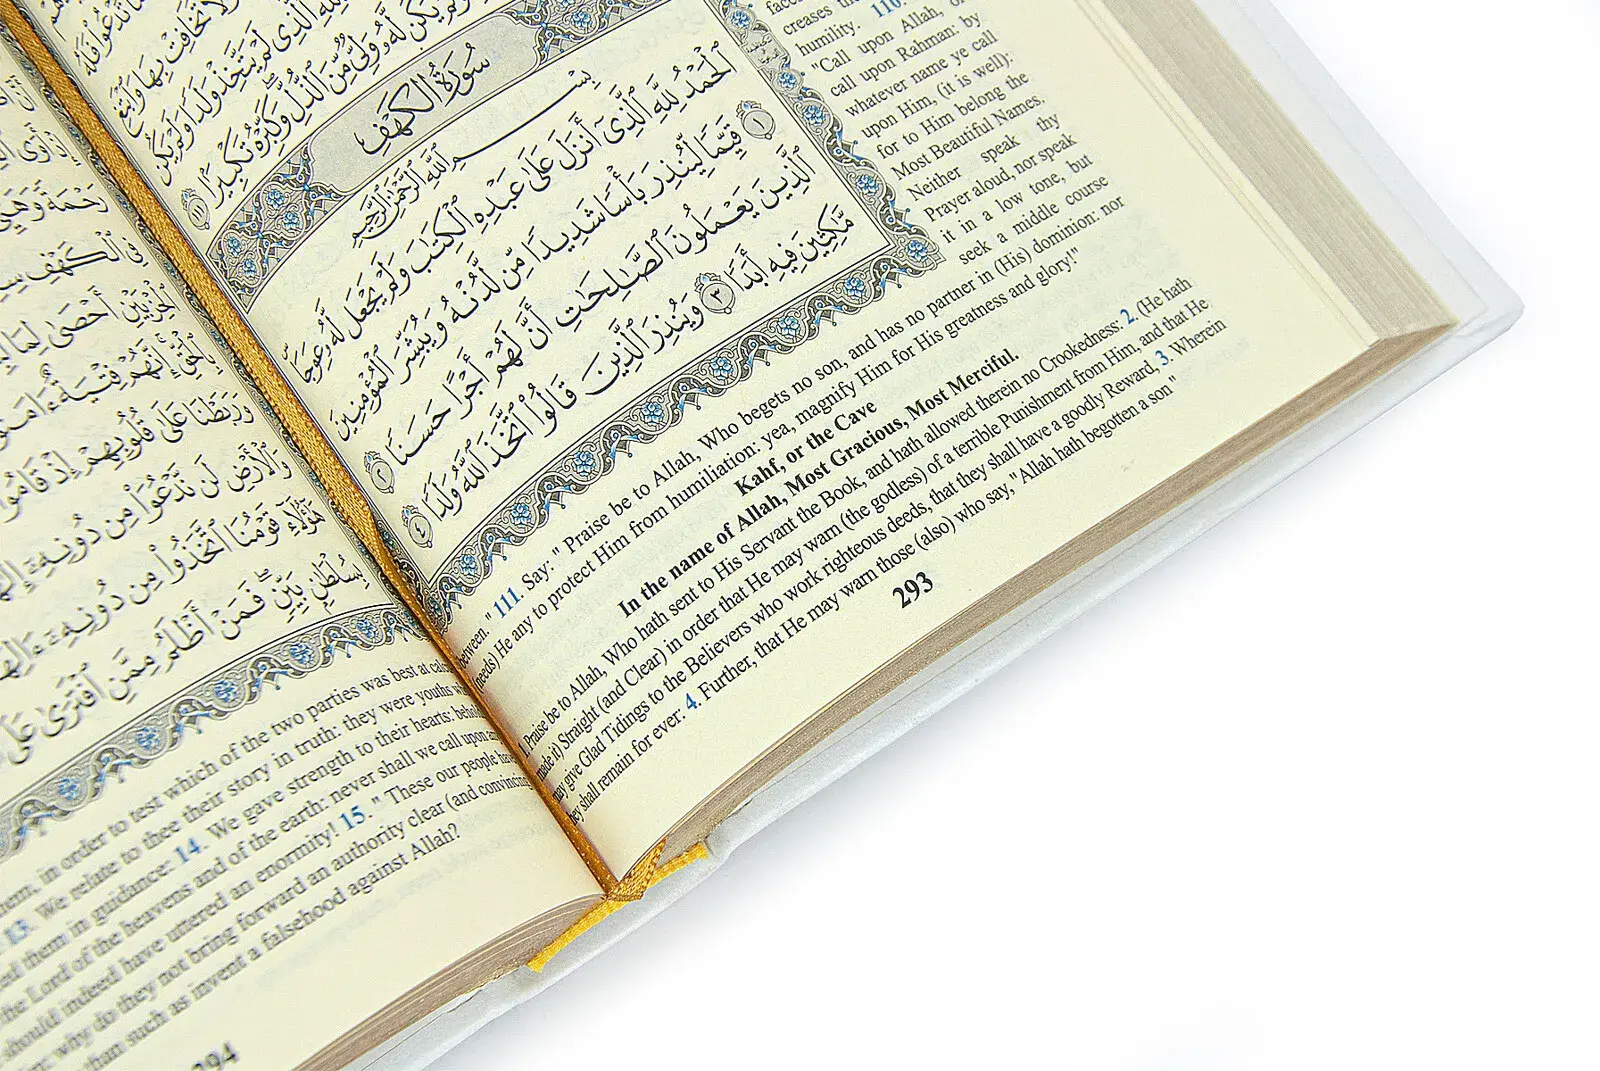 وَلَا تُخَافِتْ بِهَا وَٱبْتَغِ
ٱلَّذِى لَمْ يَتَّخِذْ وَلَدًا وَلَمْ يَكُن
يَكُن لَّهُۥ وَلِىٌّ مِّنَ ٱلذُّلِّ وَكَبِّرْهُ تَكْبِيرًۢا ١١١
سُورَةُ الكَهْفِ
بِسْمِ ٱللَّهِ ٱلرَّحْمَٰنِ ٱلرَّحِيمِ
ٱلْحَمْدُ لِلَّهِ ٱلَّذِىٓ أَنزَلَ عَلَىٰ عَبْدِهِ ٱلْكِتَٰبَ وَلَمْ يَجْعَل لَّهُۥ عِوَجَاۜ
١ قَيِّمًا لِّيُنذِرَ بَأْسًا شَدِيدًا مِّن لَّدُنْهُ وَيُبَشِّرَ ٱلْمُؤْمِنِينَ
ٱلَّذِينَ يَعْمَلُونَ ٱلصَّٰلِحَٰتِ أَنَّ لَهُمْ أَجْرًا حَسَنًا ٢
مَّٰكِثِينَ فِيهِ أَبَدًا ٣ وَيُنذِرَ ٱلَّذِينَ قَالُوا۟ ٱتَّخَذَ ٱللَّهُ وَلَدًا ٤
humility. 110.
"Call upon Allah, or
call upon Rahman: by
whatever name ye call
upon Him, (it is well):
for to Him belong the
Most Beautiful Names.
Neither speak thy
Prayer aloud, nor speak
it in a low tone, but
seek a middle course
between." 111. Say: " Praise be to Allah, Who begets no son, and has no partner in (His) dominion: nor
(needs) He any to protect Him from humiliation: yea, magnify Him for His greatness and glory!"
Kahf, or the Cave
In the name of Allah, Most Gracious, Most Merciful.
1. Praise be to Allah, Who hath sent to His Servant the Book, and hath allowed therein no Crookedness: 2. (He hath
made it) Straight (and Clear) in order that He may warn (the godless) of a terrible Punishment from Him, and that He
may give Glad Tidings to the Believers who work righteous deeds, that they shall have a goodly Reward, 3. Wherein
they shall remain for ever: 4. Further, that He may warn those (also) who say, "Allah hath begotten a son"
293
رَحْمَةً وَهَيِّئْ
فِى ٱلْكَهْفِ
ٱلْحِزْبَيْنِ أَحْصَىٰ لِمَا
بِٱلْحَقِّ إِنَّهُمْ فِتْيَةٌ
وَرَبَطْنَا عَلَىٰ قُلُوبِهِمْ إِذْ قَامُوا۟
وَٱلْأَرْضِ لَن نَّدْعُوَا۟ مِن دُونِهِۦٓ
هَٰٓؤُلَآءِ قَوْمُنَا ٱتَّخَذُوا۟ مِن دُونِهِۦٓ
بِسُلْطَٰنٍۭ بَيِّنٍ فَمَنْ أَظْلَمُ مِمَّنِ ٱفْتَرَىٰ عَلَى
in order to test which of the two parties was best at
13. We relate to thee their story in truth: they were youths
them in guidance: 14. We gave strength to their hearts:
the Lord of the heavens and of the earth: never shall we call upon
should indeed have uttered an enormity! 15. " These our people
why do they not bring forward an authority clear (and convincing
than such as invent a falsehood against Allah?
294